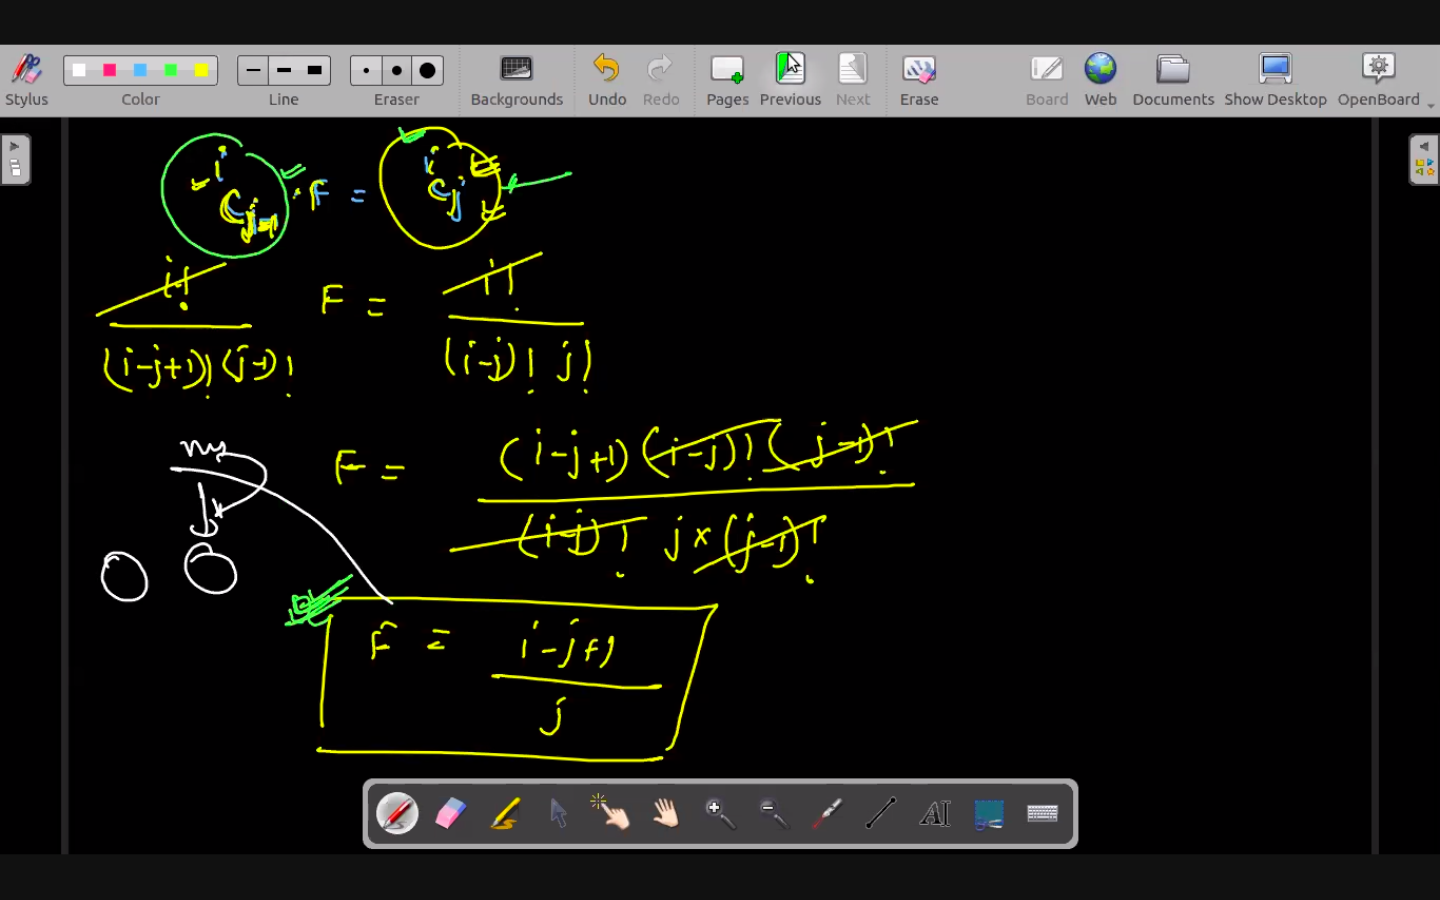 Stylus Color Line Eraser Backgrounds Undo Redo Pages Previous Next Erase Board Web Documents Show Desktop OpenBoard
i C j-1 · F = i C j
i! / (i-j+1)! (j-1)! F = i! / (i-j)! j!
F = (i-j+1) (i-j)! (j-1)! / (i-j)! j × (j-1)!
F = i-j+1 / j
AI